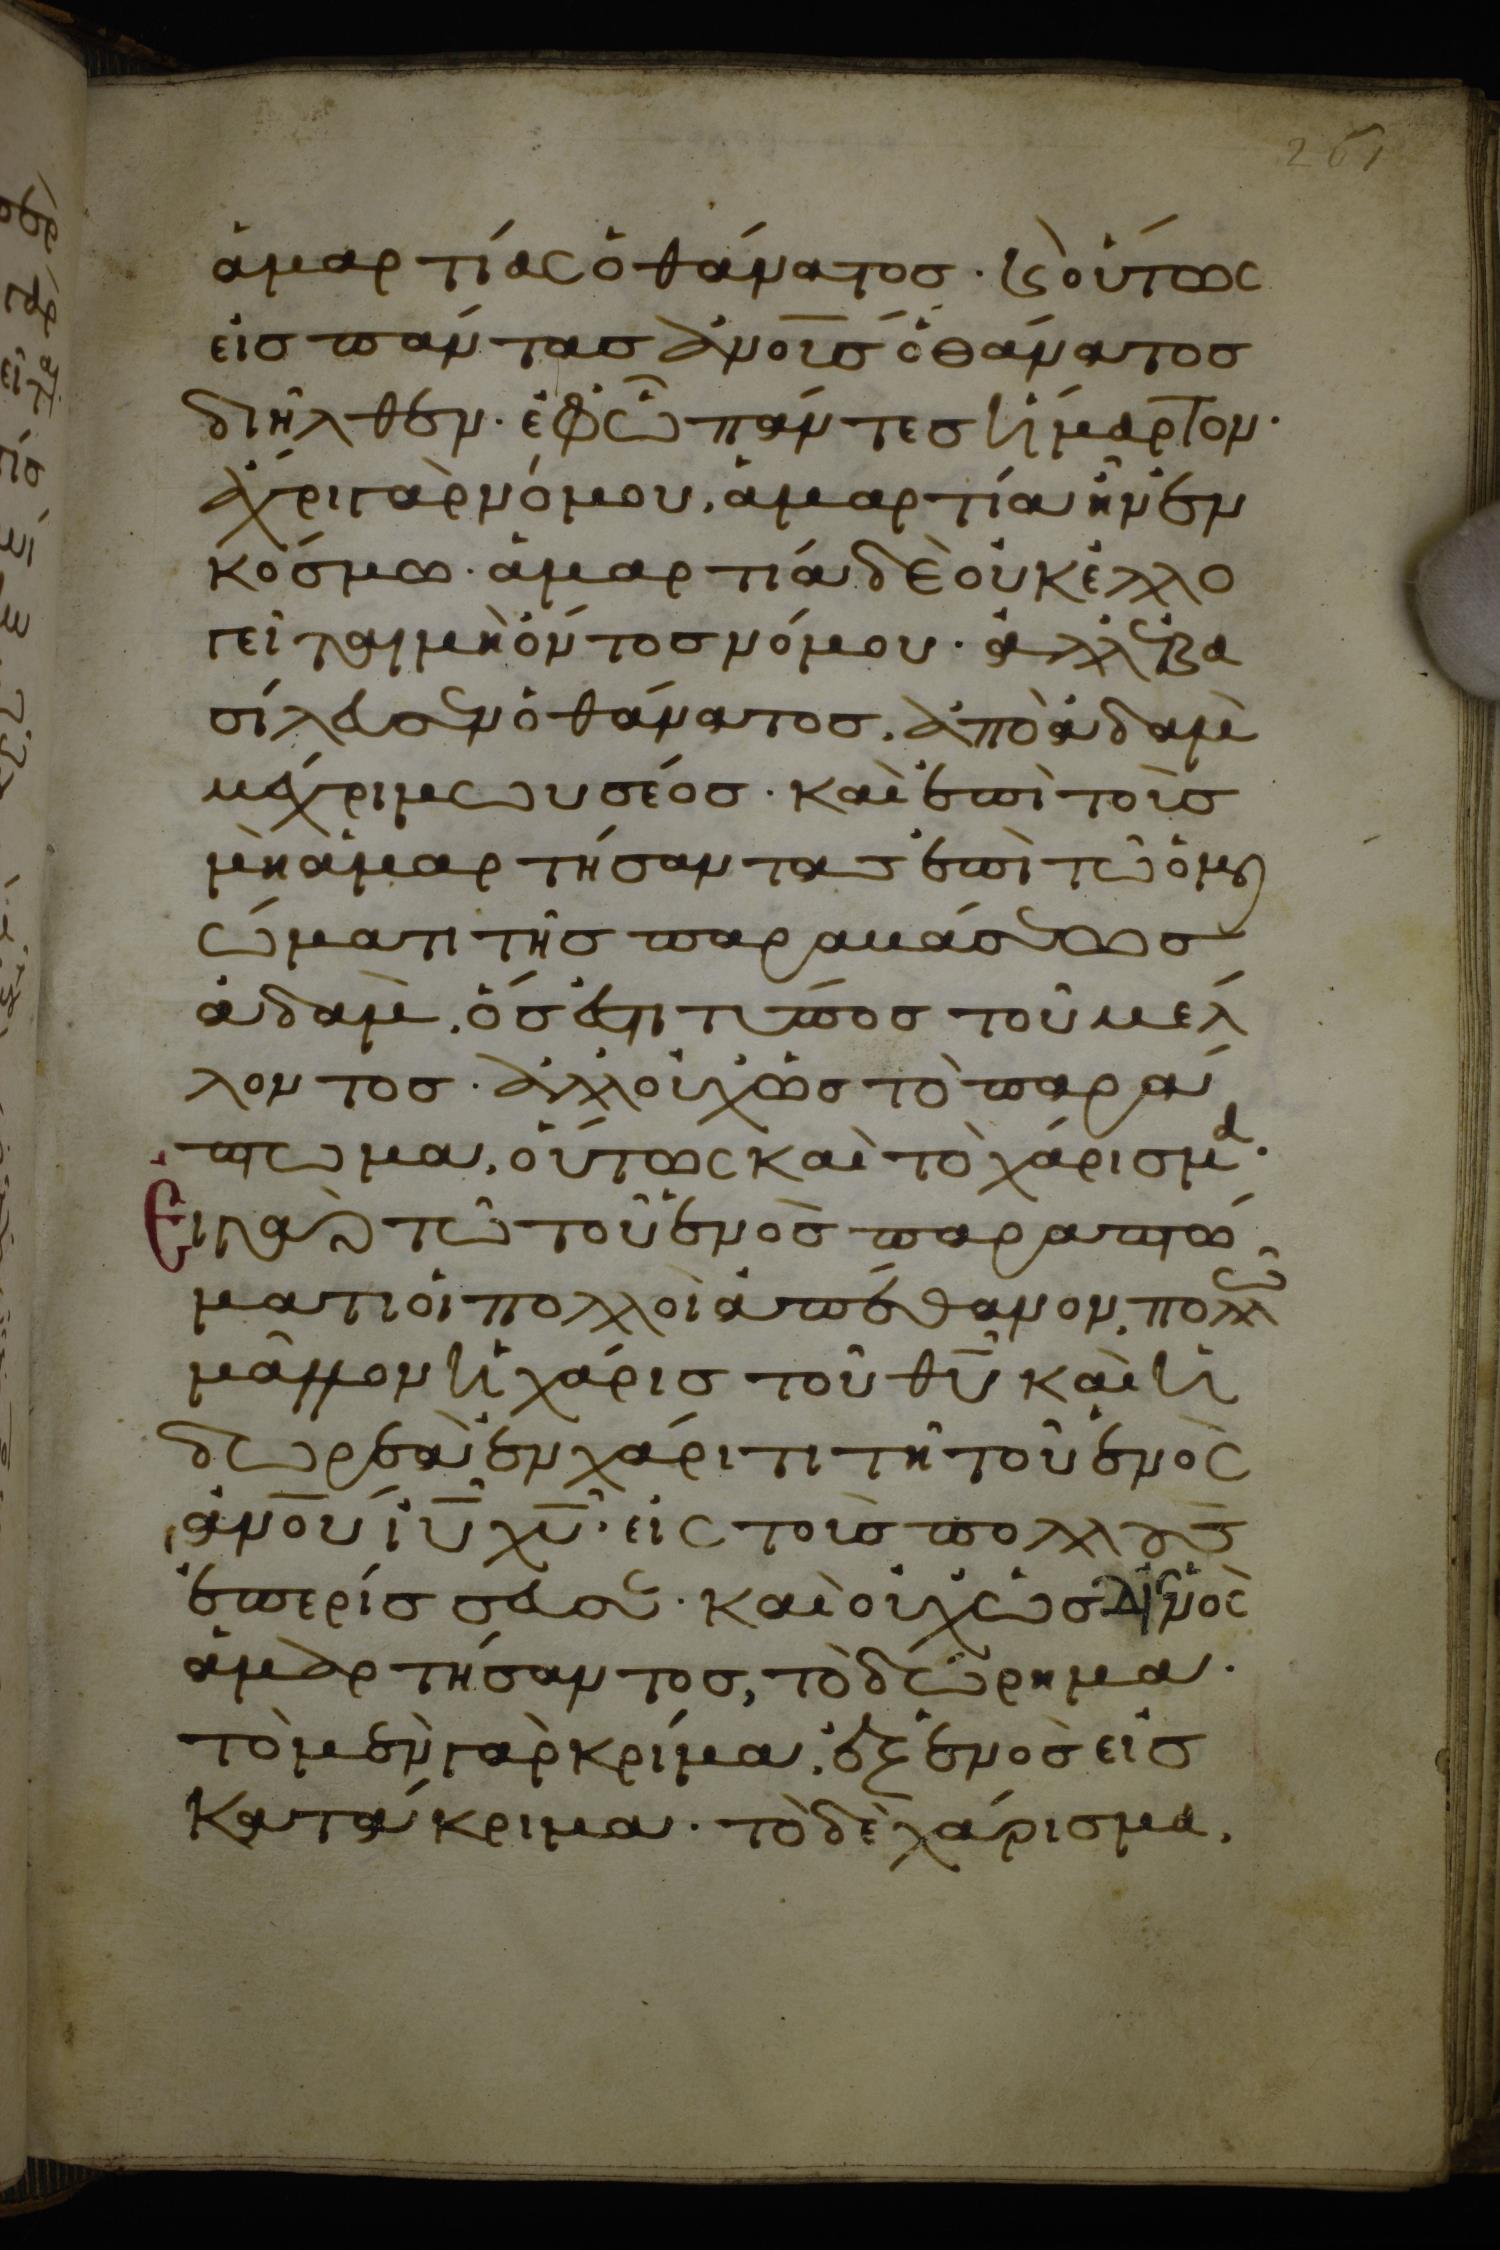 261
ἁμαρτίας ὁ θάνατος· ϗ οὕτως
εἰς πάντας ἀνο̅ις ὁ θάνατος
διῆλθεν· ἐφ ᾧ πάντες ἥμαρτον·
ἄχρι γὰρ νόμου, ἁμαρτία ἦν ἐν
κόσμω· ἁμαρτία δὲ οὐκ ἐλλο
γεῖται μὴ ὄντος νόμου· ἀλλ ἐβα
σίλευσεν ὁ θάνατος, ἀπὸ ἀδὰμ
μέχρι μωυσέος· καὶ ἐπὶ τοὺς
μὴ ἁμαρτήσαντας ἐπὶ τῶ ὁμοι
ώματι τῆς παραβάσεως
ἀδὰμ, ὅς ἐστι τύπος τοῦ μέλ
λοντος· ἀλλ οὐχ ὡς τὸ παρά
πτωμα, οὕτως καὶ τὸ χάρισμα·
Εἰ γὰρ τῶ τοῦ ἑνὸς παραπτώ
ματι οἱ πολλοὶ ἀπέθανον, πολλῶ
μᾶλλον ἡ χάρις τοῦ θ̅υ̅ καὶ ἡ
δωρεὰ ἐν χάριτι τῆ τοῦ ἑνὸς
ἀνο̅υ ἰ̅υ̅ χ̅υ̅· εἰς τοὺς πολλοὺς
ἐπερίσσευσε· καὶ οὐχ ὡς δι ἑνὸς
ἁμαρτήσαντος, τὸ δώρημα·
τὸ μὲν γὰρ κρίμα, ἐξ ἑνὸς εἰς
κατάκριμα· τὸ δὲ χάρισμα,